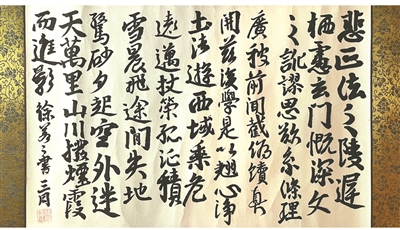 悲正法之陵遲
栖慮玄門慨深文
之訛謬思欲條理
廣彼前聞截偽續真
開茲後學是以翹心淨
土法遊西域乘危
遠邁杖策孤征積
雪晨飛途間失地
驚砂夕起空外迷
天萬里山川撥煙霞
而進影 徐之書 三月